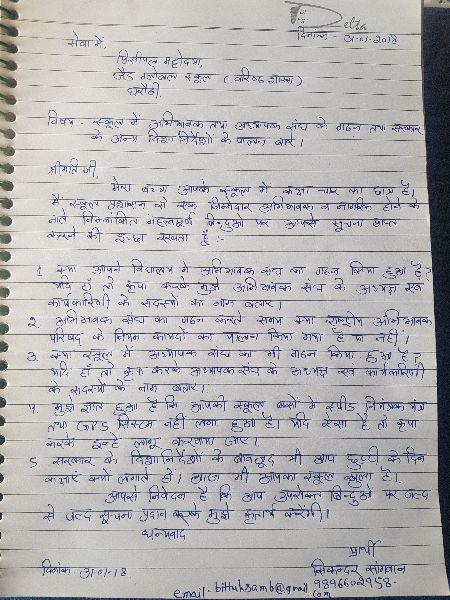 Delta
दिनांक - 31-01-2018
सेवा में,
प्रिंसीपल महोदया,
जैड ग्लोबल स्कूल (वरिष्ठ शाखा)
घरौंडी.
विषय - स्कूल में अभिभावक तथा अध्यापक संघ के गठन तथा सरकार
के अन्य दिशा निर्देशों के पालन बारे।
श्रीमति जी,
मेरा बच्चा आपके स्कूल में कक्षा चार का छात्र है।
मैं स्कूल प्रशासन से एक जिम्मेदार अभिभावक व नागरिक होने के
नाते निम्नलिखित महत्वपूर्ण बिन्दुओं पर आपसे सूचना प्राप्त
करने की इच्छा रखता हूँ :-
1. क्या आपने विद्यालय में अभिभावक संघ का गठन किया हुआ है?
यदि हाँ तो कृपा करके मुझे अभिभावक संघ के अध्यक्ष एवं
कार्यकारिणी के सदस्यों का नाम बताएं।
2. अभिभावक संघ का गठन करते समय क्या राष्ट्रीय अभिभावक
परिषद के नियम कायदों का पालन किया गया है या नहीं।
3. क्या स्कूल में अध्यापक संघ का भी गठन किया हुआ है?
यदि हाँ तो कृपा करके अध्यापक संघ के अध्यक्ष एवं कार्यकारिणी
के सदस्यों के नाम बताएं।
4. मुझे ज्ञात हुआ है कि आपकी स्कूल बसों में स्पीड नियंत्रक यंत्र
तथा GPS सिस्टम नहीं लगा हुआ है। यदि ऐसा है तो कृपा
करके इन्हें लागू करवाया जाए।
5. सरकार के दिशानिर्देशों के बावजूद भी आप छुट्टी के दिन
कक्षाएं क्यों लगाते हैं। आज भी आपका स्कूल खुला है।
आपसे निवेदन है कि आप उपरोक्त बिन्दुओं पर जल्द
से जल्द सूचना प्रदान करके मुझे कृतार्थ करेंगी।
धन्यवाद
प्रार्थी
दिनांक 31-01-18 सिकन्दर सांगवान
9896602958.
email - bittuhsamb@gmail.com